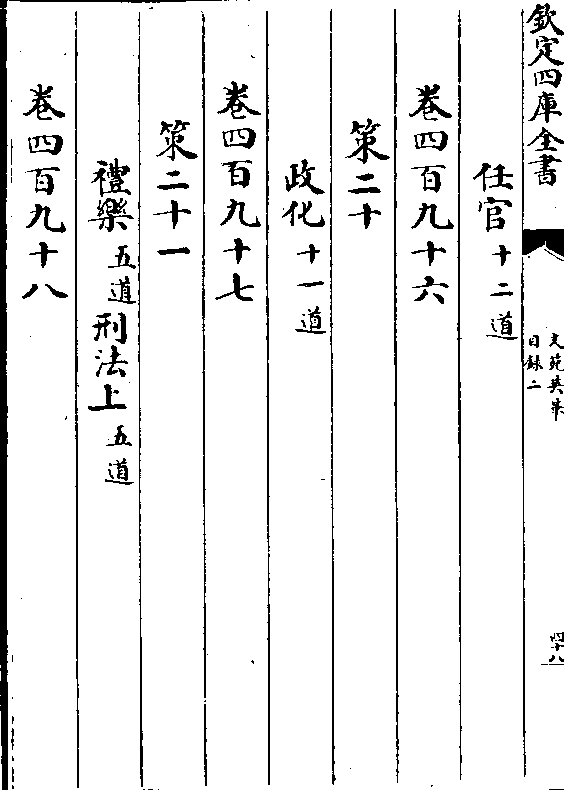 欽定四庫全書
文苑英華
目録二
四十八
任官十二道
卷四百九十六
策二十
政化十一道
卷四百九十七
策二十一
禮樂五道刑法上五道
卷四百九十八